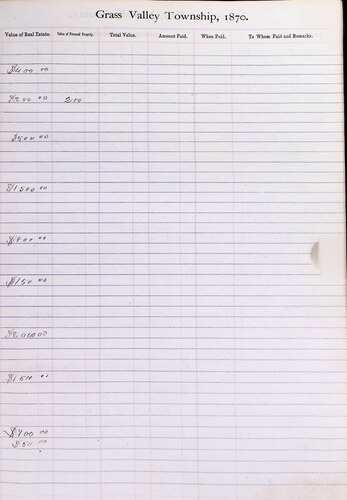 Grass Valley Township, 1870.
Value of Real Estate. Value of Personal Property. Total Value. Amount Paid. When Paid. To Whom Paid and Remarks.
$400 00
$250 00 200
$500 00
$1500 00
$400 00
$150 00
$2000 00
$150 00
$400 00
$50 00